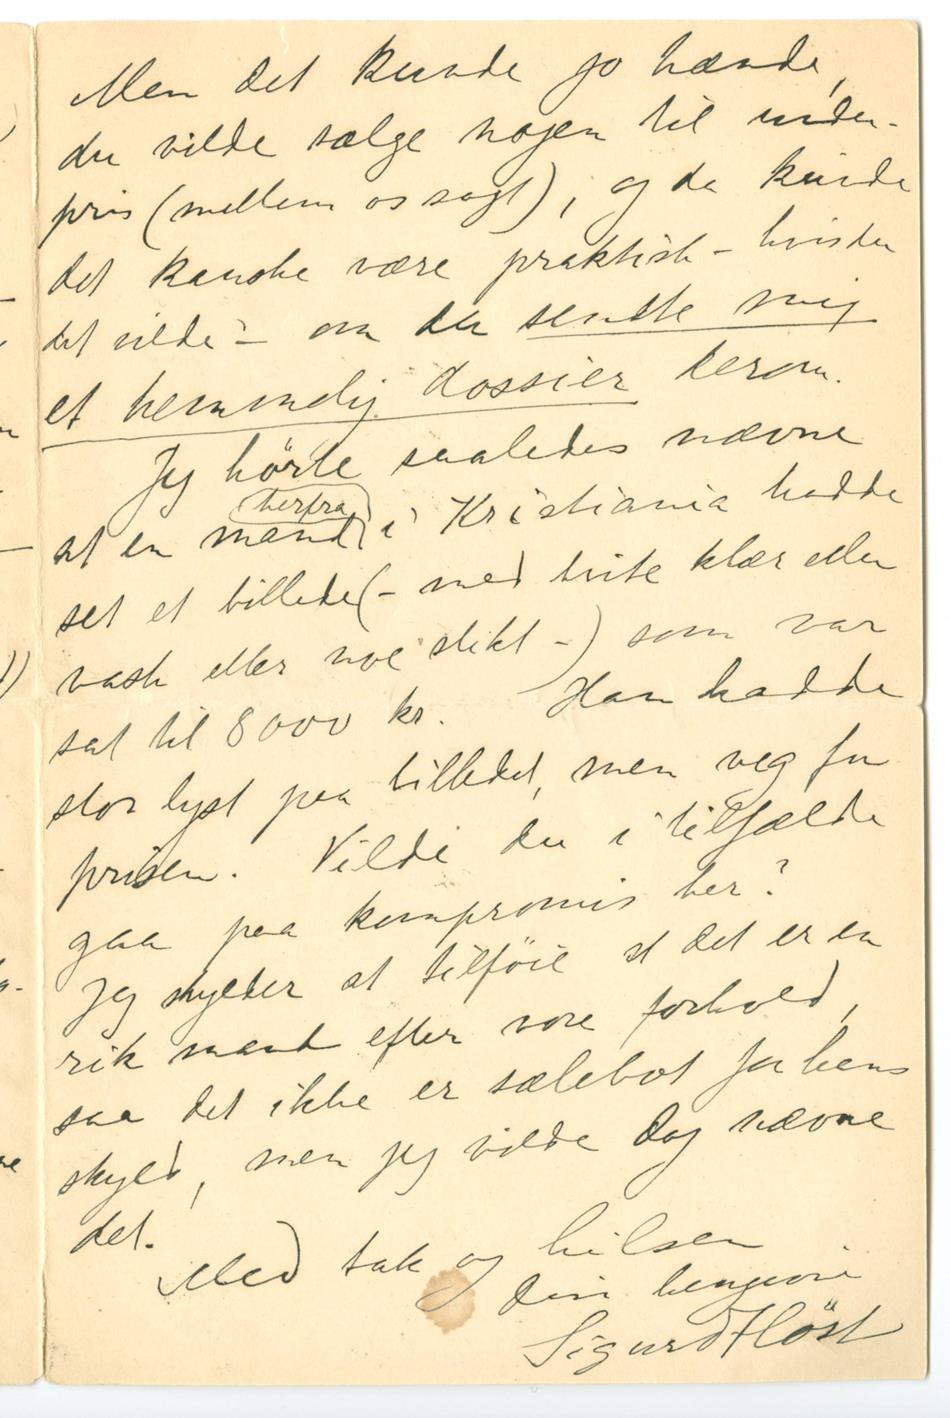 Men det kunde jo hænde,
du vilde sælge nogen til under-
pris (mellem os sagt), og da kunde
det kanske være praktisk – hvis du
det vilde – om du sendte mig
et hemmelig dossier derom.
Jeg hörte saaledes nævne
at en mand herfra i Kristiania hadde
set et billede (– med hvite klær eller
vask eller noe slikt –) som var
sat til 8000 kr. Han hadde
stor lyst paa billedet, men veg for
prisen. Vilde du i tilfælde
gaa paa kompromis her?
Jeg skylder at tilföie at det er en
rik mand efter vore forhold,
saa det ikke er sælebot for hans
skyld, men jeg vilde dog nævne
det.
Med tak og hilsen
din hengivne
Sigurd Höst